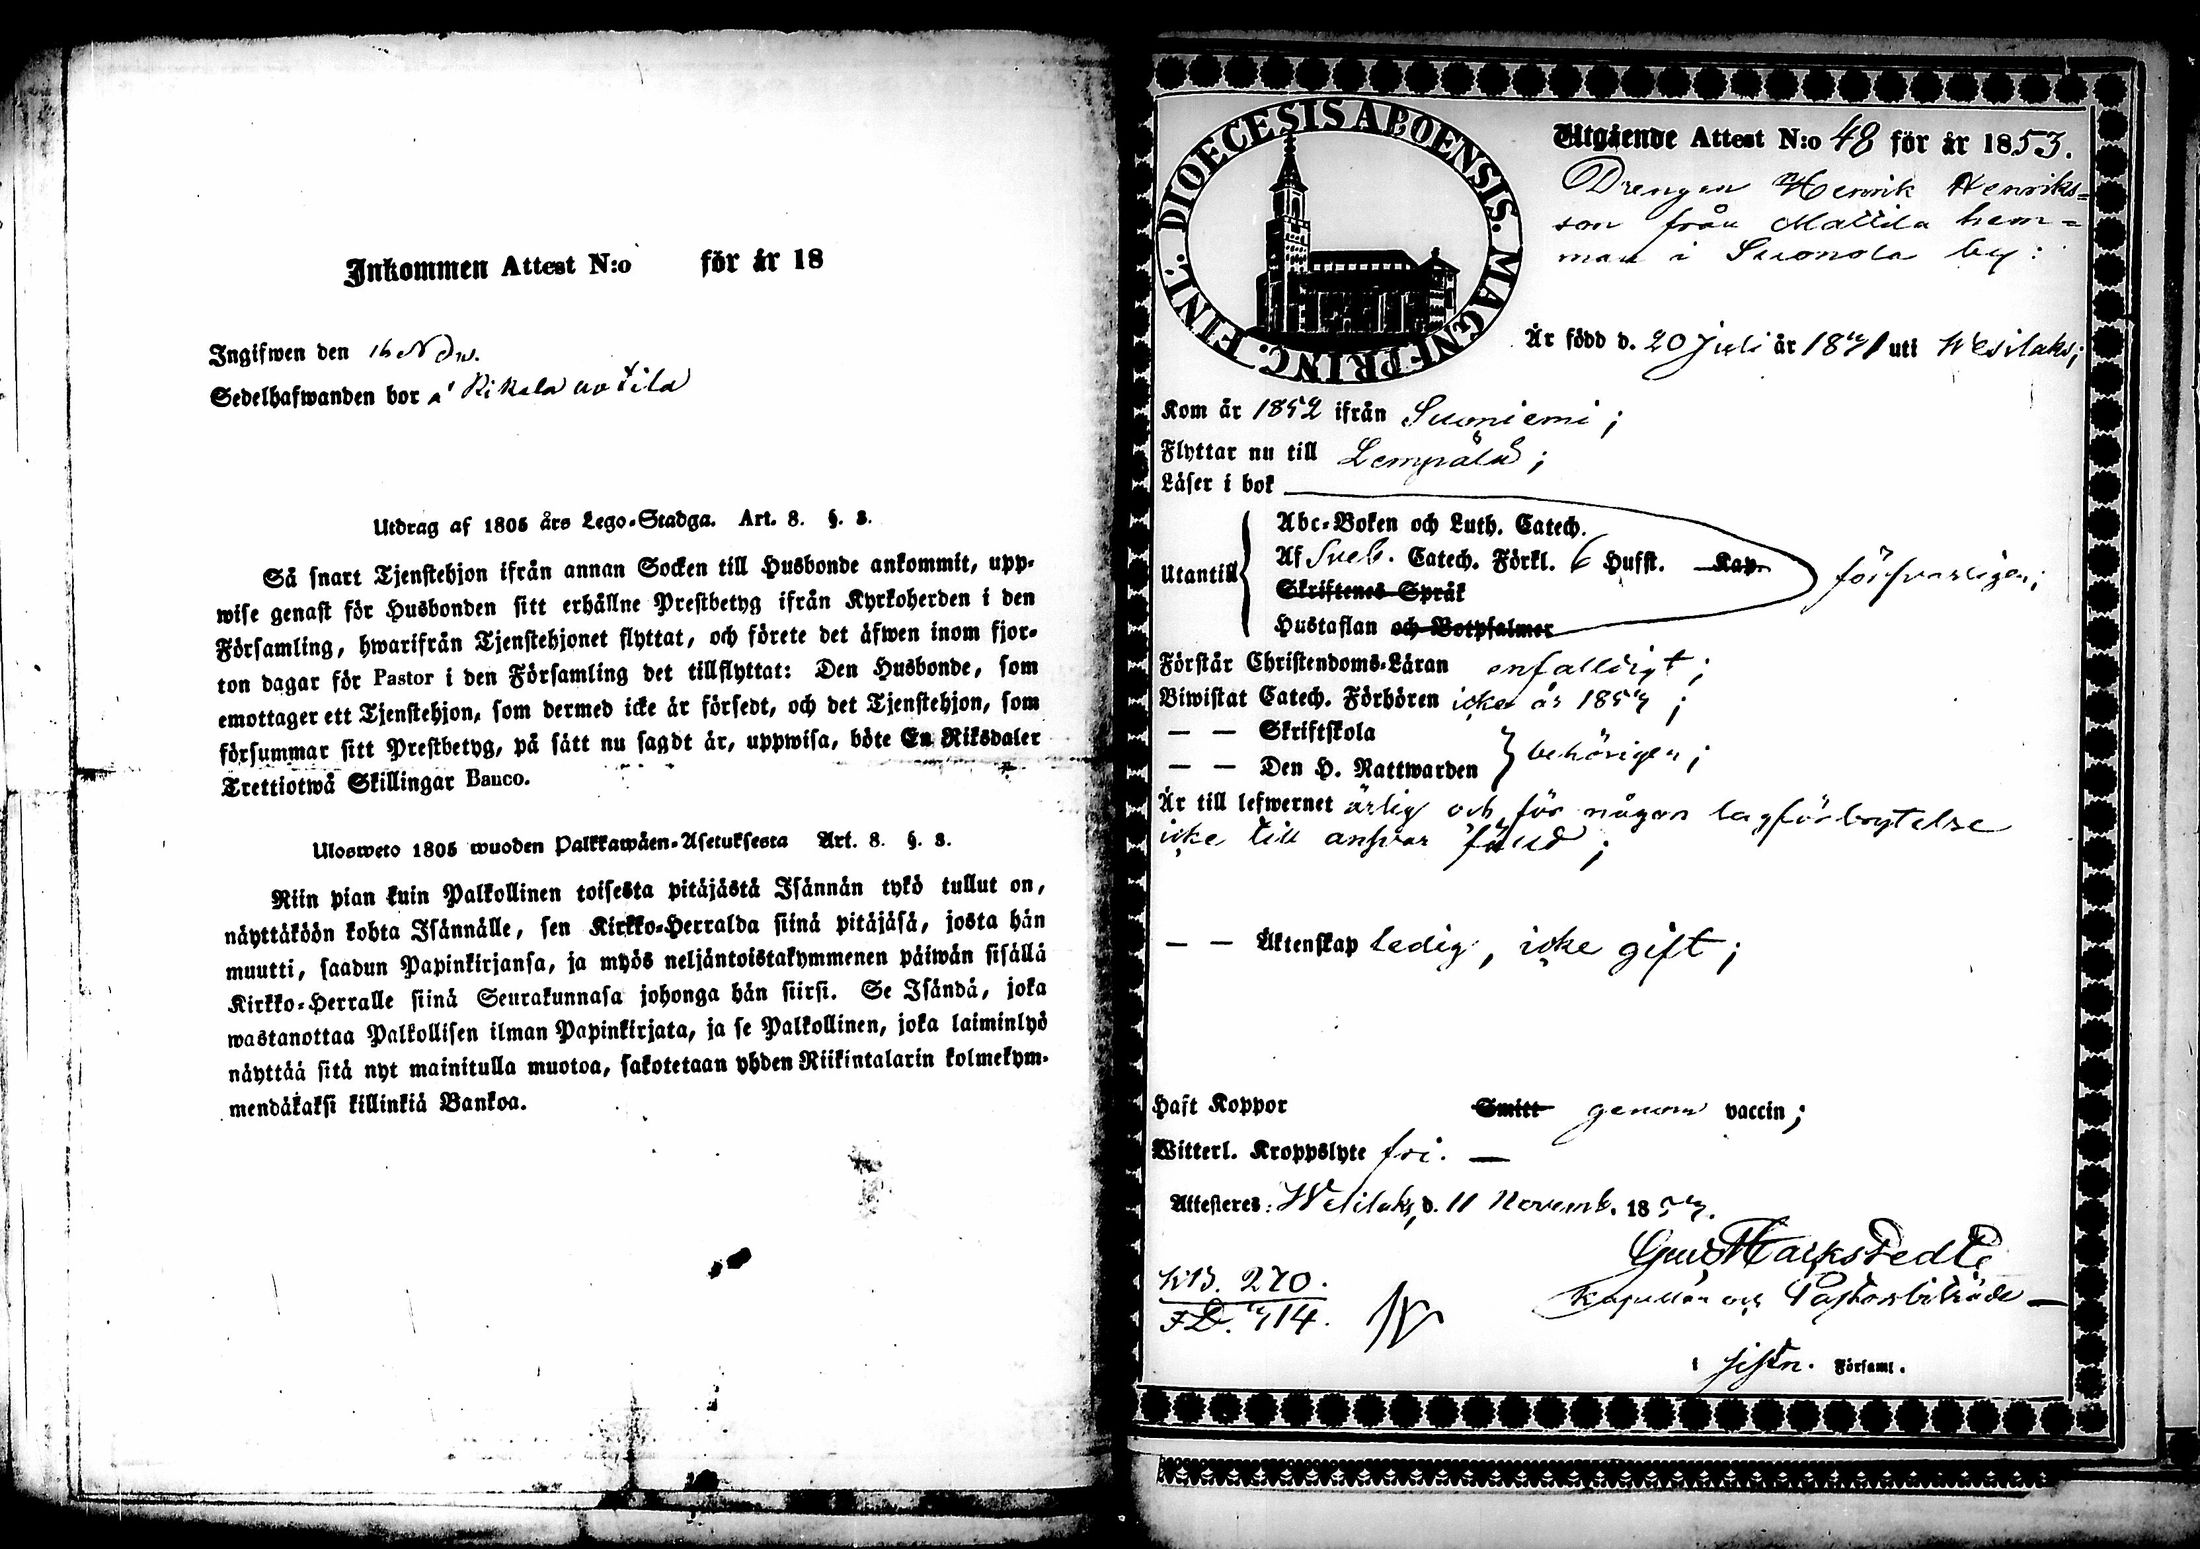 Inkommen Attest N:o för år 18
Ingifwen den 16 Nov.
Sedelhafwanden bor å Kikala
Utdrag af 1805 års Lego-Stadga. Art. 8. §. 3.
Så snart Tjenstehjon ifrån annan Socken till Husbonde ankommit, upp-
wise genast för Husbonden sitt erhållne Prestbetyg ifrån Kyrkoherden i den
Församling, hwarifrån Tjenstehjonet flyttat, och förete det äfwen inom fjor-
ton dagar för Pastor i den Församling det tillflyttat: Den Husbonde, som
emottager ett Tjenstehjon, som dermed icke är försedt, och det Tjenstehjon, som
försummar sitt Prestbetyg, på sätt nu sagdt är, uppwisa, böte En Riksdaler
Trettiotwå Skillingar Banco.
Ulosweto 1805 wuoden Palkkawäen-Asetuksesta Art. 8. §. 3.
Niin pian kuin Palkollinen toisesta pitäjästä Isännän tykö tullut on,
näyttäköön kohta Isännälle, sen Kirkko-Herralda siinä pitäjäsä, josta hän
muutti, saadun Papinkirjansa, ja myös neljäntoistakymmenen päiwän sisällä
Kirkko-Herralle siinä Seurakunnasa johonga hän siirsi. Se Isändä, joka
wastanottaa Palkollisen ilman Papinkirjata, ja se Palkollinen, joka laiminlyö
näyttää sitä nyt mainitulla muotoa, sakotetaan yhden Riikintalarin kolmekym-
mendäkaksi killinkiä Bankoa.
DIOECESIS ABOENSIS. MAGNI PRINC. FINL.
Utgående Attest N:o 48 för år 1853.
Drengen Henrik Henriks-
son från Mattila hem-
man i Suonola by:
Är född d. 20 Juli år 1831 uti Wesilaks;
Kom år 1852 ifrån Suoniemi;
Flyttar nu till Lempälä;
Läser i bok
Abc-Boken och Luth. Catech.
Utantill Af Sveb. Catech. Förkl. 6 Hufst. Kap. försvarligen;
Skriftenes Språk
Hustaflan och Botpsalmer
Förstår Christendoms-Läran enfaldigt;
Biwistat Catech. Förhören icke år 1853;
— — Skriftskola
— — Den H. Nattwarden behörigen;
Är till lefwernet ärlig och för någon lagförbrytelse
icke till answar fälld;
— — Äktenskap ledig, icke gift;
Haft Koppor Smitt genom vaccin;
Witterl. Kroppslyte fri. —
Attesteres: Wesilaks, d. 11 Novemb. 1853.
Gust Harkstedt
Kapellan och Pastorsbiträde —
KB. 270.
FD. 314.
i sistn. Församl.